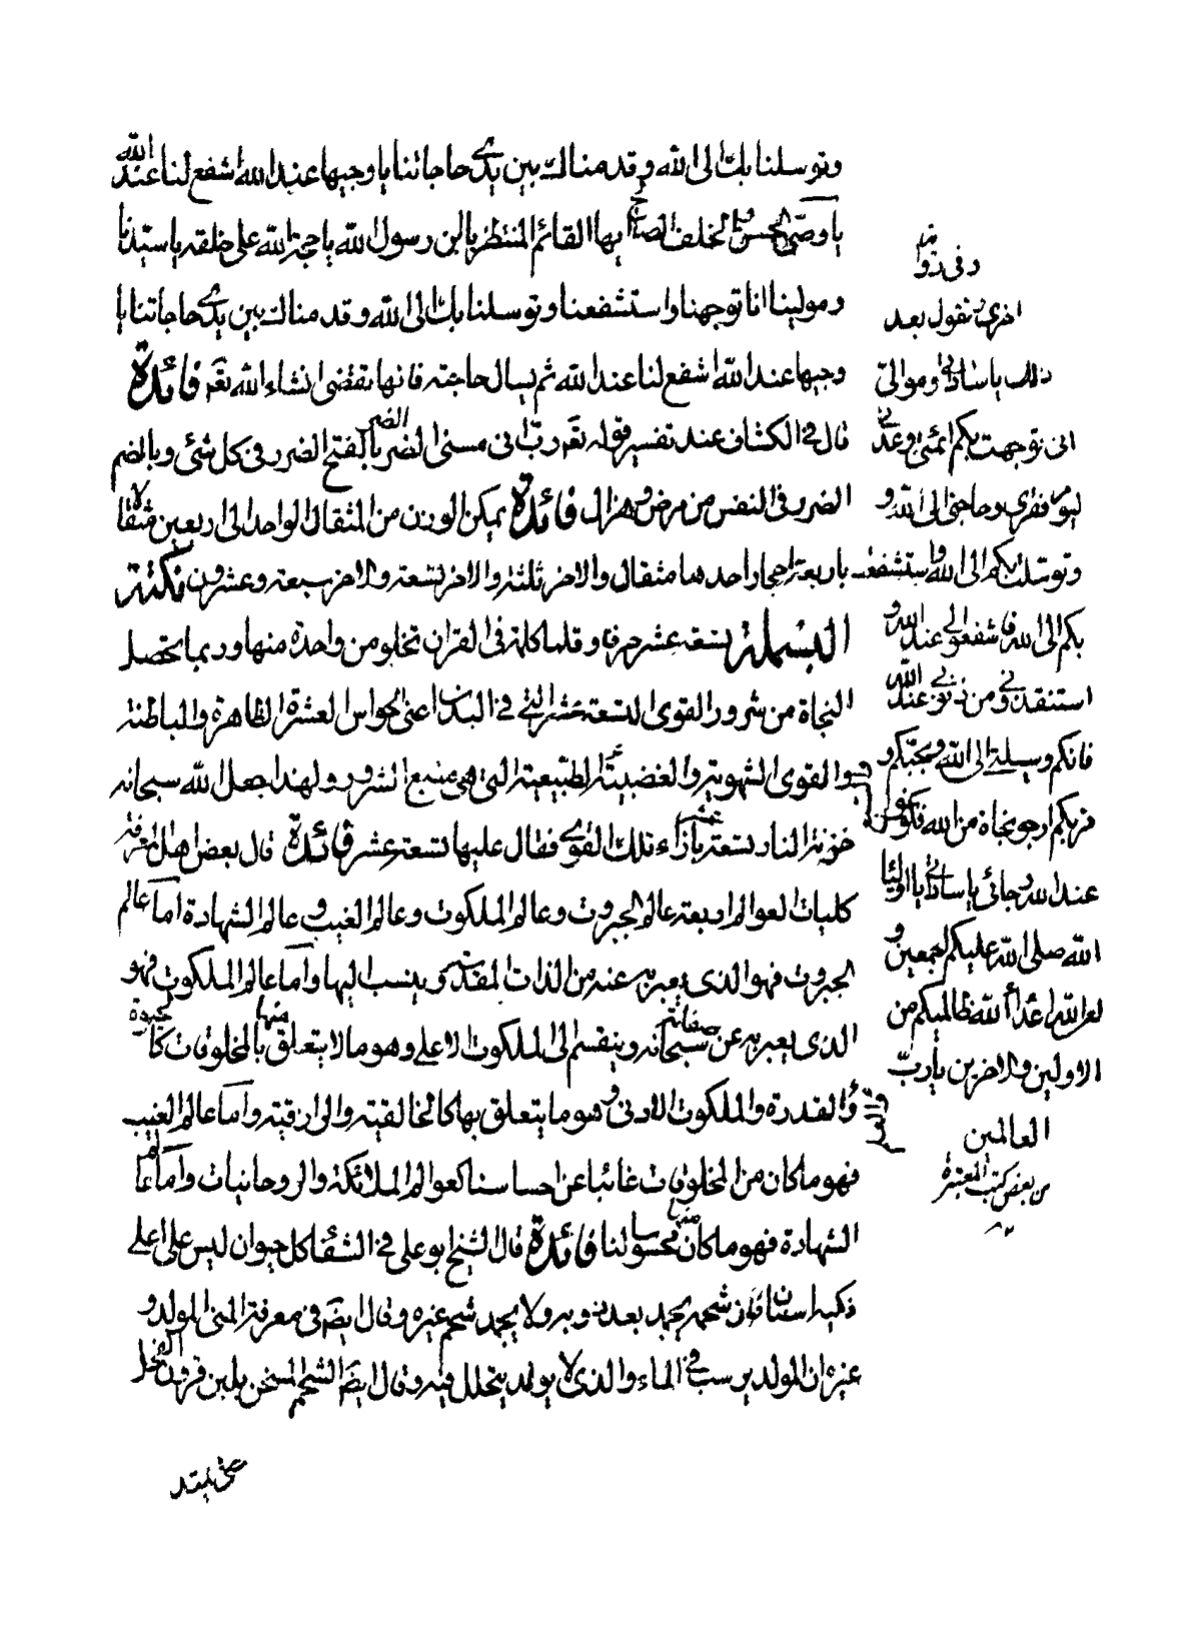 وتوسلنا بك الى الله وقدمناك بين يدى حاجاتنا يا وجيها عند الله اشفع لنا عند الله
يا وصى الحسن والخلف الصالح ايها القائم المنتظر يا بن رسول الله يا حجة الله على خلقه يا سيدنا
ومولينا انا توجهنا واستشفعنا وتوسلنا بك الى الله وقدمناك بين يدى حاجاتنا يا
وجيها عند الله اشفع لنا عند الله ثم يسال حاجته فانها تقضى انشاء الله تعم فائدة
قال فى الكشاف عند تفسير قوله تعم رب انى مسنى الضر الضر بالفتح الضرر فى كل شئ وبالضم
الضرر فى النفس من مرض وهزال فائدة يمكن الوزن من المثقال الواحد الى اربعين مثقالا
باربعة احجار احدها مثقال والاخر ثلثة والاخر تسعة والاخر سبعة وعشرون نكتة
البسملة تسعة عشر حرفا وقلما كلمة فى القران تخلو من واحدة منها وربما يحصل
النجاة من شرور القوى التسعة عشر التى فى البدن اعنى الحواس العشرة الظاهرة والباطنة
والقوى الشهوية والغضبية والطبيعية التى هى منبع الشرور ولهذا جعل الله سبحانه
خزنة النار تسعة عشر بازاء تلك القوى فقال عليها تسعة عشر فائدة قال بعض اهل المعرفة
كليات العوالم اربعة عالم الجبروت وعالم الملكوت وعالم الغيب وعالم الشهادة اما عالم
الجبروت فهو الذى يعبر به عنه من الذات المقدسة وينسب اليها واما عالم الملكوت فهو
الذى يعبر به عن صفاته سبحانه وينقسم الى الملكوت الاعلى وهو ما لا يتعلق منها بالمخلوقات كالحيوة
والقدرة والملكوت الادنى وهو ما يتعلق بها كالخالقية والرازقية واما عالم الغيب
فهو ما كان من المخلوقات غائبا عن احساسنا كعوالم الملائكة والروحانيات واما عالم
الشهادة فهو ما كان منها محسوسا لنا فائدة قال الشيخ ابو على فى الشفا كل حيوان ليس على اعلى
فكيه اسنان فان شحمه يجمد بعد ذوبه ولا يجمد شحم غيره وقال ايضا فى معرفة المنى المولد و
غيره ان المولد يرسب فى الماء والذى لا يولد يتخلل فيه وقال ايضا الشحم المسخن يلين قرون العجل
حتى يمتد
وفى رواية
اخرى تقول بعد
ذلك يا ساداتى وموالى
انى توجهت بكم ائمتى وعدتى
ليوم فقرى وحاجتى الى الله و
وتوسلت بكم الى الله واستشفعت
بكم الى الله فاشفعوا لى عند الله و
استنقذونى من ذنوبى عند الله
فانكم وسيلتى الى الله وبحبكم و
قربكم ارجو نجاة من الله فكونوا
عند الله رجائى يا ساداتى يا اولياء
الله صلى الله عليكم اجمعين و
لعن الله اعداء الله ظالميكم من
الاولين والاخرين يا رب
العالمين
من بعض كتب المعتبرة